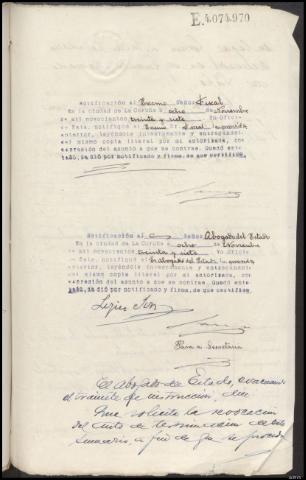 E.4074.970
Notificación al Excmo Señor Fiscal
En la ciudad de La Coruña a ocho de Noviembre
de mil novecientos treinta y siete Yo Oficial
de Sala, notifiqué al Excmo Sr. Fiscal la providencia
anterior, leyéndole íntegramente y entregándole
del mismo copia literal por mi autorizada, con
expresión del asunto a que se contrae. Quedó ente-
rado, se dió por notificado y firma, de que certifico.
Notificación al Señor Abogado del Estado
En la ciudad de La Coruña a ocho de Noviembre
de mil novecientos treinta y siete Yo Oficial
de Sala, notifiqué al abogado del Estado la providencia
anterior, leyéndole íntegramente y entregándole
del mismo copia literal por mi autorizada, con
expresión del asunto a que se contrae. Quedó ente-
rado, se dió por notificado y firma, de que certifico.
Pasa a Secretaría
El Abogado de Estado, evacuando
el trámite de instrucción, dice
Que solicita la revocación
del auto de terminación de este
Sumario, a fin de que se proceda